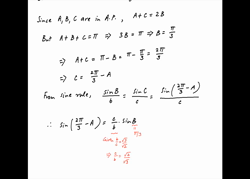 Since A, B, C are in A.P., A+C = 2B
But A+B+C = π ⇒ 3B = π ⇒ B = π/3
⇒ A+C = π − B = π − π/3 = 2π/3
⇒ C = 2π/3 − A
From sine rule, sinB/b = sinC/c = sin(2π/3 − A)/c
∴ sin(2π/3 − A) = c/b · sinB